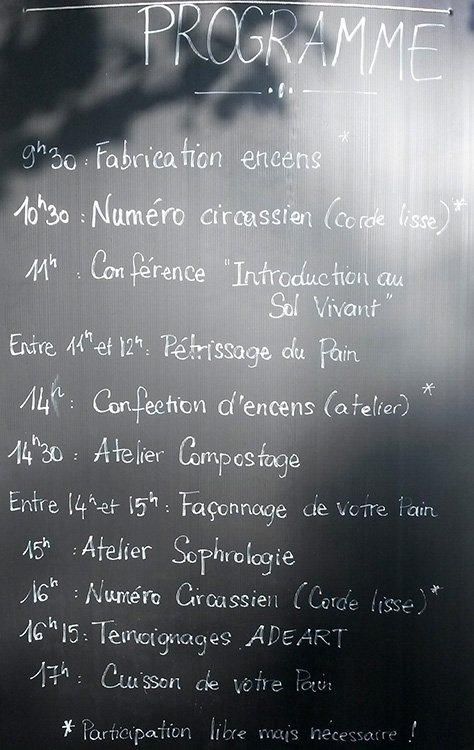 PROGRAMME
9h30 : Fabrication encens *
10h30 : Numéro circassien (corde lisse)*
11h : Conférence "Introduction au
Sol Vivant"
Entre 11h et 12h : Pétrissage du Pain
14h : Confection d'encens (atelier) *
14h30 : Atelier Compostage
Entre 14h et 15h : Façonnage de votre Pain
15h : Atelier Sophrologie
16h : Numéro Circassien (Corde lisse)*
16h15 : Temoignages ADEART
17h : Cuisson de votre Pain
* Participation libre mais nécessaire !